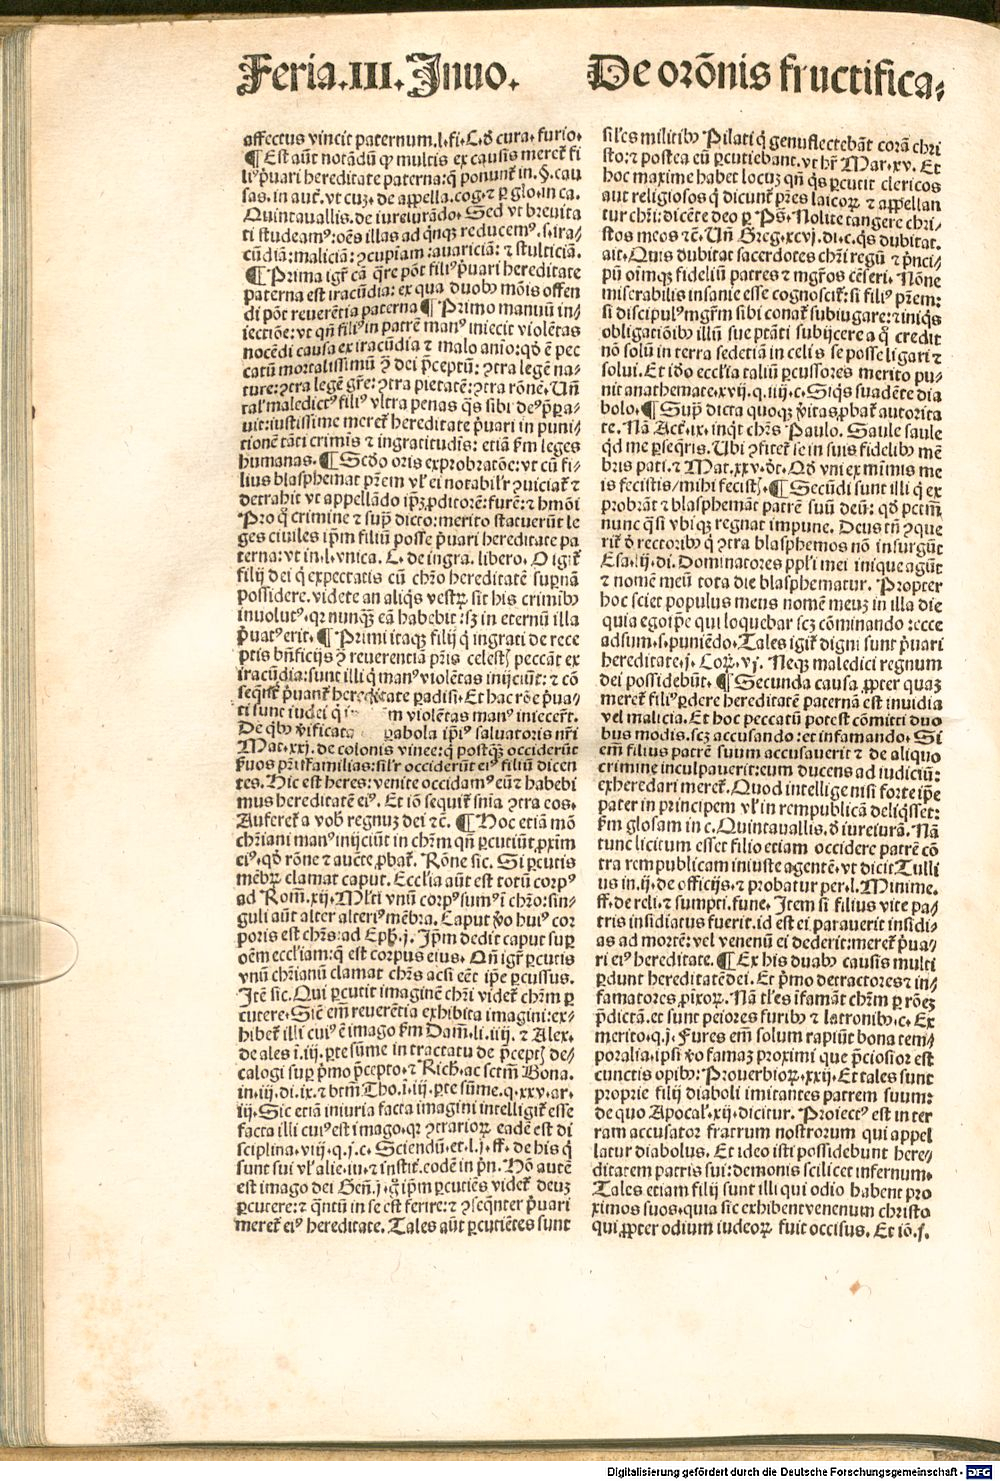 Feria.III. Inuo. De orōnis fructifica⸗
affectus vincit paternum.l.fi.C.đ cura. furio.
¶ Est aūt notādū qꝙ multis ex causis meret᷑ fi
liꝰ p̄uari hereditate paterna: q̄ ponunt᷑ in.§.cau
sas. in aut᷑. vt cuꝫ. de appella. cog. ⁊ ꝑ glo. in ca.
Quintauallis. de iureiurādo. Sed vt breuita
ti studeamꝰ: oēs illas ad qͥnqꝫ reducemꝰ. s. ira⸗
cūdiā: maliciā: ↄcupiam: auariciā: ⁊ stulticiā.
¶ Prima igr̄ cā q̄re pōt filiꝰ p̄uari hereditate
paterna est iracūdia: ex qua duobꝰ mōis offen
di pōt reuerētia paterna ¶ Primo manuū in⸗
iectiōe: vt qn̄ filiꝰ in patrē manꝰ iniecit violētas
nocēdi causa ex iracūdia ⁊ malo anīo: qđ ē pec
catū mortalissimū ↄͣ dei p̄ceptū: ↄtra legē na⸗
ture: ↄtra legē gr̄e: ↄtra pietatē: ↄtra rōnē. Un̄
tal᷑ maledictꝰ filiꝰ vltra penas q̄s sibi deꝰ p̄para⸗
uit: iustissime meret᷑ hereditate p̄uari in puni⸗
tionē tāti crimīs ⁊ ingratitudīs: etiā ẜm leges
humanas. ¶ Scđo oris exprobratōe: vt cū fi⸗
lius blasphemat pr̄em vl᷑ ei notabilr̄ ↄuiciat᷑ ⁊
detrahit vt appellādo ipꝫ ꝓditorē: furē: ⁊ hmōi
Pro qͦ crimine ⁊ supͣ dicto: merito statuerūt le
ges ciuiles ip̄m filiū posse p̄uari hereditate pa
terna: vt in.l. vnica. C. de ingra. libero. O igit᷑
filij dei q̄ expectatis cū chr̄o hereditatē supernā
possidere. videte an aliqͥs vestrꝝ sit his crimibꝰ
inuolutꝰ. qꝛ nunqꝫ eā habebit: sꝫ in eternū illa
p̄uatꝰ erit. ¶ Primi itaqꝫ filij qͥ ingrati de rece
ptis bn̄ficijs ↄͣ reuerentiā pr̄is celestꝭ peccāt ex
iracūdia: sunt illi qͥ manꝰ violētas inijciūt: ⁊ cō
seqn̄t᷑ p̄uant᷑ hereditate padisi. Et hac rōe p̄ua⸗
ti sunt iudei qͥ i m violētas manꝰ iniecer̄t.
De qͥbꝰ v̓ificata rabola ip̄iꝰ saluatoris nr̄i
Mat.xxj. de colonis vinee: qͥ postqꝫ occiderūt
ẜuos pr̄isfamilias: silr̄ occiderūt eiꝰ filiū dicen
tes. Hic est heres: venite occidamꝰ eū ⁊ habebi
mus hereditatē eiꝰ. Et iō sequit᷑ sn̄ia ↄtra eos.
Auferet᷑ a vob̄ regnuꝫ dei ⁊c̄. ¶ Hoc etiā mō
chr̄iani manꝰ inijciūt in chr̄m qn̄ ꝑcutiūt ꝓxim
eiꝰ. qđ rōne ⁊ aucte ꝓbat᷑. Rōne sic. Si ꝑcutis
mēbrꝝ clamat caput. Ecclīa aūt est totū corpꝰ
ad Rom̄.xij. Ml̄ti vnū corpꝰ sumꝰ ī chr̄o: sin⸗
guli aūt alter alteriꝰ mēbra. Caput v̓o huiꝰ cor
poris est chr̄s: ad Eph̄.j. Ip̄m dedit caput supͣ
oēm eccl̄iam: q̄ est corpus eius. Qn̄ igr̄ ꝑcutis
vnū chr̄ianū clamat chr̄s acsi eēt ip̄e ꝑcussus.
Itē sic. Qui ꝑcutit imaginē chr̄i videt᷑ chr̄m ꝑ
cutere. Sic em̄ reuerētia exhibita imagini: ex⸗
hibet᷑ illi cuiꝰ ē imago ẜm Dam̄.li.iiij. ⁊ Alex.
de ales ī.iij. ꝑte sūme in tractatu de p̄ceptꝭ de⸗
calogi sup p̓mo p̄cepto. ⁊ Rich̄. ac sctm̄ Bona.
in.iij.di.ix. ⁊ btm̄ Tho.ī.iij. ꝑte sūme.q.xxv.ar.
iij. Sic etiā iniuria facta imagini intelligit᷑ esse
facta illi cuiꝰ est imago. qꝛ ↄtrariorꝝ eadē est di
sciplina.viij.q.j.c. Sciendū. et.l.j.ff. de his qͥ
sunt sui vl᷑ alie.iu. ⁊ institꝭ. eodē in pn̄. Hō autē
est imago dei Gen̄.j. qͥ igr̄ ip̄m ꝑcutiēs videt᷑ deuꝫ
ꝑcutere: ⁊ qͣntū in se est ferire: ⁊ ↄseqn̄ter p̄uari
meret᷑ eiꝰ hereditate. Tales aūt ꝑcutiētes sunt
sil̄es militibꝰ Pilati qͥ genuflectebāt corā chri
sto: ⁊ postea eū ꝑcutiebant. vt hr̄ Mar.xv. Et
hoc maxime habet locuꝫ qn̄ qͥs ꝑcutit clericos
aut religiosos qͥ dicunt᷑ pr̄es laicorꝝ ⁊ appellan
tur chr̄i: dicēte deo ꝑ Ps̄. Nolite tangere chri⸗
stos meos ⁊c̄. Un̄ Greg.xcvj.di.c. qͥs dubitat.
ait. Quis dubitat sacerdotes chr̄i regū ⁊ p̓nci⸗
pū oīmqꝫ fideliū patres ⁊ mgr̄os cēseri. Nōne
miserabilis insanie esse cognoscit᷑: si filiꝰ pr̄em:
si discipulꝰ mgr̄m sibi conat᷑ subiugare: ⁊ iniqͥs
obligatiōibꝰ illū sue ptāti subijcere a qͦ credit
nō solū in terra sed etiā in celis se posse ligari ⁊
solui. Et iđo eccl̄ia taliū ꝑcussores merito pu⸗
nit anathemate.xvij.q.iiij.c. Siqͥs suadēte dia
bolo. ¶ Supͣ dicta quoqꝫ v̓itas ꝓbat᷑ autorita
te. Nā Act᷑.ix. inqͥt chr̄s Paulo. Saule saule
qͥd me ꝑseqͥris. Ubi ↄfitet᷑ se in suis fidelibꝰ mē
bris pati. ⁊ Mat.xxv. dt̄. Qđ vni ex mīmis me
is fecistis/mihi fecistꝭ. ¶ Secūdi sunt illi qͥ ex
probrāt ⁊ blasphemāt patrē suū deū: qđ pctm̄
nunc qͣsi vbiqꝫ regnat impune. Deus tn̄ ↄque
rit᷑ đ rectoribꝰ qͥ ↄtra blasphemos nō insurgūt
Esa.lij.di. Dominatores ppl̄i mei inique agūt
⁊ nomē meū tota die blasphematur. Propter
hoc sciet populus meus nomē meuꝫ in illa die
quia ego ip̄e qui loquebar scꝫ cōminando: ecce
adsum. s. puniēdo. Tales igit᷑ digni sunt p̄uari
hereditate.j. Corꝝ.vj. Neqꝫ maledici regnum
dei possidebūt. ¶ Secunda causa ꝓpter quaꝫ
meret᷑ filiꝰ ꝑdere hereditatē paternā est inuidia
vel malicia. Et hoc peccatū potest cōmitti duo
bus modis. scꝫ accusando: et infamando. Si
em̄ filius patrē suum accusauerit ⁊ de aliquo
crimine inculpauerit: eum ducens ad iudiciū:
exheredari meret᷑. Quod intellige nisi forte ip̄e
pater in principem vl᷑ in rempublicā deliqͥsset:
ẜm glosam in c. Quintauallis. đ iureiurā. Nā
tunc licitum esset filio etiam occidere patrē cō
tra rempublicam iniuste agentē. vt dicit Tulli
us in.ij. de officijs. ⁊ probatur per.l. Minime.
ff. de reli. ⁊ sumpti. fune. Item si filius vite pa⸗
tris insidiatus fuerit. id est ei parauerit insidi⸗
as ad mortē: vel venenū ei dederit: meret᷑ p̄ua⸗
ri eiꝰ hereditate. ¶ Ex his duabꝰ causis multi
ꝑdunt hereditatē dei. Et p̓mo detractores ⁊ in⸗
famatores ꝓixorꝝ. Nā tl̄es īfamāt chr̄m ꝑ rōeꝫ
p̄dictā. et sunt peiores furibꝰ ⁊ latronibꝰ.c. Ex
merito.q.j. Fures em̄ solum rapiūt bona tem⸗
poralia. ipsi v̓o famaꝫ proximi que p̄ciosior est
cunctis opibꝰ: Prouerbiorꝝ.xxij. Et tales sunt
proprie filij diaboli imitantes patrem suum:
de quo Apocal᷑.xij. dicitur. Proiectꝰ est in ter
ram accusator fratrum nostrorum qui appel
latur diabolus. Et ideo isti possidebunt here⸗
ditatem patris sui: demonis scilicet infernum.
Tales etiam filij sunt illi qui odio habent pro
ximos suos. quia sic exhibent venenum christo
qui ꝓpter odium iudeorꝝ fuit occisus. Et iō. j.
Digitalisierung gefördert durch die Deutsche Forschungsgemeinschaft - DFG